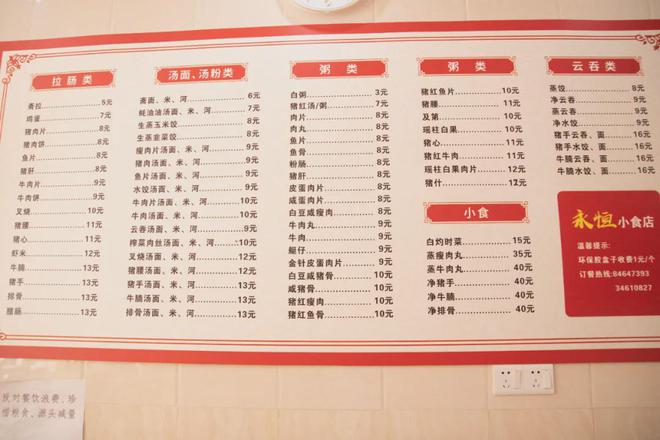 拉 肠 类
斋拉 5元
鸡蛋 7元
猪肉片 8元
猪肉饼 8元
鱼片 8元
猪肝 8元
牛肉片 9元
牛肉饼 9元
叉烧 10元
猪腰 11元
猪心 11元
虾米 12元
牛腩 13元
猪手 13元
排骨 13元
腊肠 13元
汤面、汤粉类
斋面、米、河 6元
蚝油汤面、米、河 7元
生蒸玉米饺 8元
生蒸韭菜饺 8元
瘦肉片汤面、米、河 9元
猪肉汤面、米、河 9元
鱼片汤面、米、河 9元
水饺汤面、米、河 9元
牛肉片汤面、米、河 10元
牛肉汤面、米、河 10元
云吞汤面、米、河 9元
榨菜肉丝汤面、米、河 10元
叉烧汤面、米、河 12元
猪腰汤面、米、河 12元
猪手汤面、米、河 13元
牛腩汤面、米、河 13元
排骨汤面、米、河 13元
粥 类
白粥 3元
猪红汤/粥 7元
肉片 8元
肉丸 8元
鱼片 8元
鱼骨 8元
粉肠 8元
猪肝 8元
皮蛋肉片 8元
咸蛋肉片 8元
白豆咸瘦肉 8元
牛肉丸 9元
牛肉 9元
艇仔 9元
金针皮蛋肉片 9元
白豆咸猪骨 10元
咸猪骨 10元
猪红瘦肉 10元
猪红鱼骨 10元
粥 类
猪红鱼片 10元
猪腰 11元
及第 10元
瑶柱白果 10元
猪心 11元
猪红牛肉 11元
瑶柱白果肉片 12元
猪什 12元
小食
白灼时菜 15元
蒸瘦肉丸 35元
蒸牛肉丸 40元
净猪手 40元
净牛腩 40元
净排骨 40元
云吞类
蒸饺 8元
净云吞 9元
蒸云吞 9元
净水饺 9元
猪手云吞、面 16元
猪手水饺、面 16元
牛腩云吞、面 16元
牛腩水饺、面 16元
永恒小食店
温馨提示:
环保胶盒子收费1元/个
订餐热线:84647393
34610827
反对餐饮浪费、珍
惜粮食、源头减量